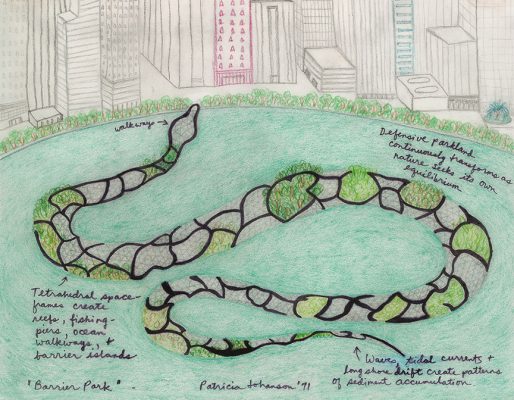 walkways →
Defensive parkland
continuously transforms as
nature seeks its own
equilibrium
Tetrahedral space-
frames create
reefs, fishing-
piers, ocean
walkways, +
barrier islands
Waves, tidal currents +
longshore drift create patterns
of sediment accumulation.
"Barrier Park" -
Patricia Johanson '91